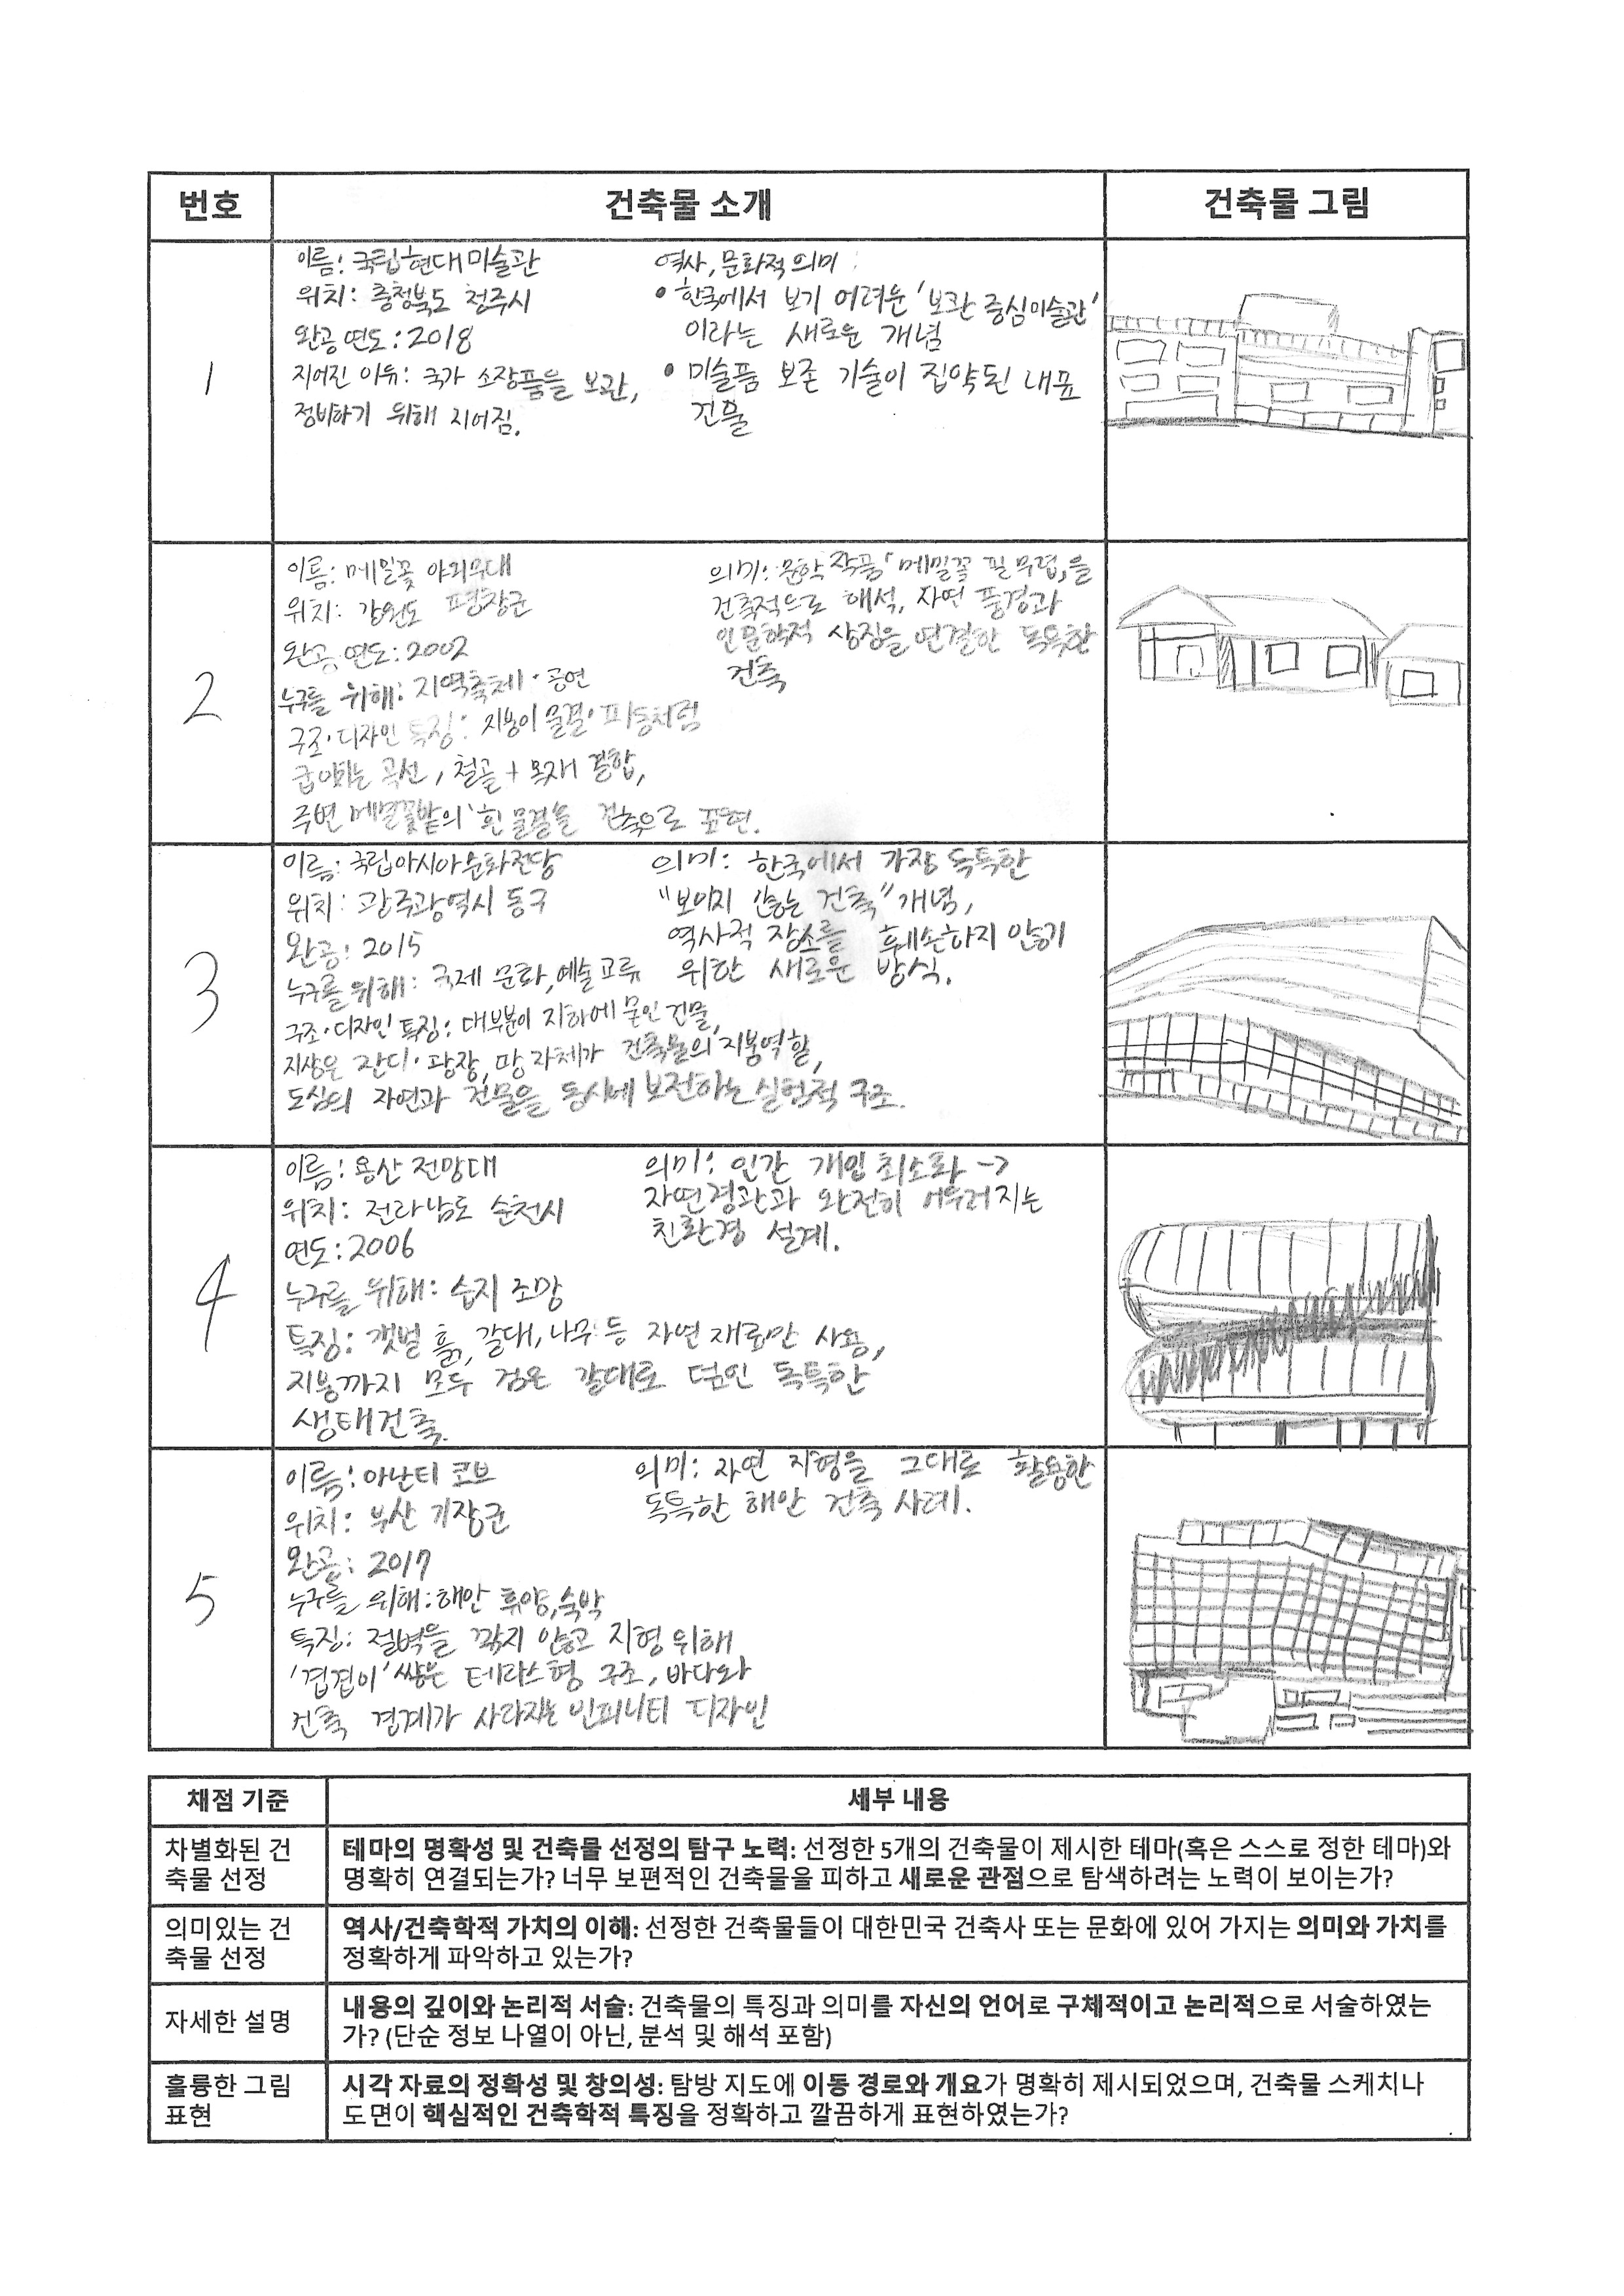 번호
건축물 소개
건축물 그림
1
이름: 국립현대미술관
위치: 충청북도 청주시
완공 연도: 2018
지어진 이유: 국가 소장품을 보관,
정비하기 위해 지어짐.
역사, 문화적 의미:
• 한국에서 보기 어려운 '보관 중심미술관'
이라는 새로운 개념
• 미술품 보존 기술이 집약된 내표
건물
2
이름: 메밀꽃 야외무대
위치: 강원도 평창군
완공 연도: 2002
누구를 위해: 지역축제·공연
구조·디자인 특징: 지붕이 물결·파동처럼
굽이치는 곡선, 철골+목재 결합,
주변 메밀꽃밭의 '흰 물결'을 건축으로 표현.
의미: 문학 작품「메밀꽃 필 무렵」을
건축적으로 해석, 자연 풍경과
인문학적 상징을 연결한 독특한
건축
3
이름: 국립아시아문화전당
위치: 광주광역시 동구
완공: 2015
누구를 위해: 국제 문화, 예술 교류
구조·디자인 특징: 대부분이 지하에 묻인 건물,
지상은 잔디·광장, 땅 자체가 건축물의 지붕역할,
도심의 자연과 건물을 동시에 보전하는 실험적 구조.
의미: 한국에서 가장 독특한
"보이지 않는 건축" 개념,
역사적 장소를 훼손하지 않기
위한 새로운 방식.
4
이름: 용산 전망대
위치: 전라남도 순천시
연도: 2006
누구를 위해: 습지 조망
특징: 갯벌 흙, 갈대, 나무 등 자연 재료만 사용,
지붕까지 모두 검은 갈대로 덮인 독특한
생태건축.
의미: 인간 개입 최소화 →
자연경관과 완전히 어우러지는
친환경 설계.
5
이름: 아난티 코브
위치: 부산 기장군
완공: 2017
누구를 위해: 해안 휴양, 숙박
특징: 절벽을 깎지 않고 지형 위해
'겹겹이' 쌓은 테라스형 구조, 바다와
건축 경계가 사라지는 인피니티 디자인
의미: 자연 지형을 그대로 활용한
독특한 해안 건축 사례.
채점 기준
세부 내용
차별화된 건
축물 선정
테마의 명확성 및 건축물 선정의 탐구 노력: 선정한 5개의 건축물이 제시한 테마(혹은 스스로 정한 테마)와
명확히 연결되는가? 너무 보편적인 건축물을 피하고 새로운 관점으로 탐색하려는 노력이 보이는가?
의미있는 건
축물 선정
역사/건축학적 가치의 이해: 선정한 건축물들이 대한민국 건축사 또는 문화에 있어 가지는 의미와 가치를
정확하게 파악하고 있는가?
자세한 설명
내용의 깊이와 논리적 서술: 건축물의 특징과 의미를 자신의 언어로 구체적이고 논리적으로 서술하였는
가? (단순 정보 나열이 아닌, 분석 및 해석 포함)
훌륭한 그림
표현
시각 자료의 정확성 및 창의성: 탐방 지도에 이동 경로와 개요가 명확히 제시되었으며, 건축물 스케치나
도면이 핵심적인 건축학적 특징을 정확하고 깔끔하게 표현하였는가?